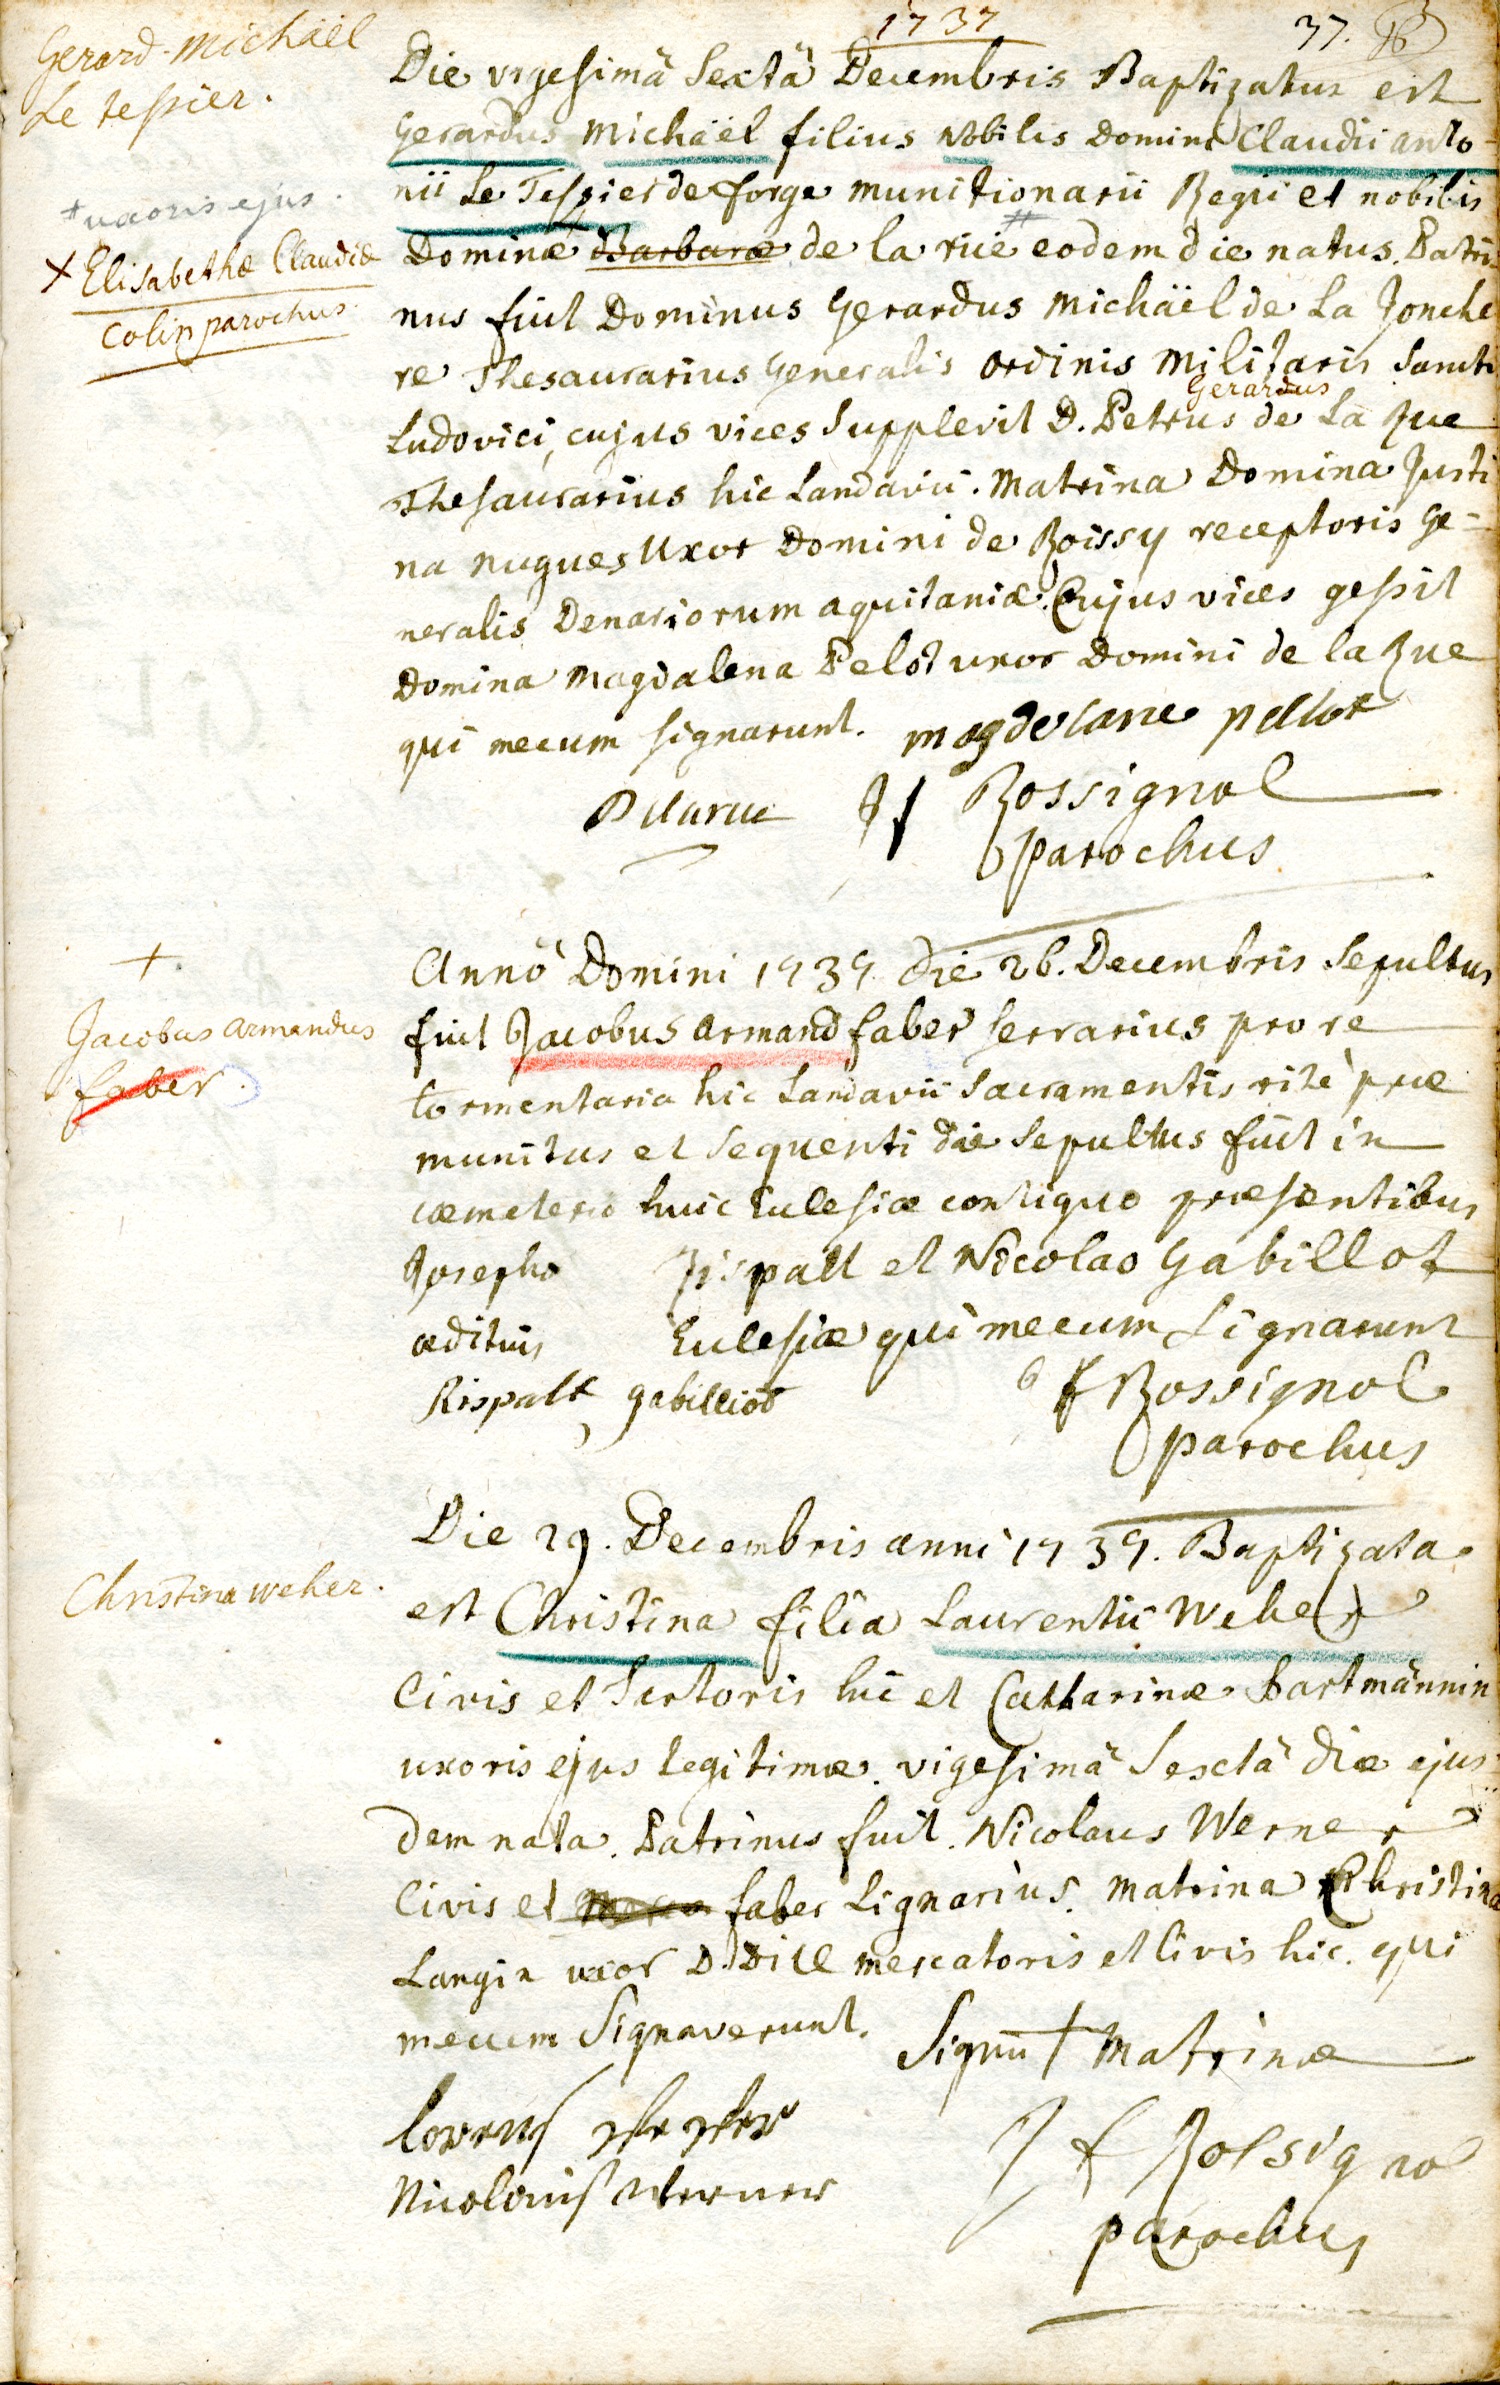 1737
37.
Gerard-Michäel
Le tessier.
Die vigesimâ Sextâ Decembris Baptizatus est
Gerardus Michäel filius Nobilis Domini Claudii anto-
nii Le Tessier de forge munitionarii Regii et nobilis
+ uxoris ejus.
Dominæ Barbaræ de la rüe eodem die natus. Patri-
x Elisabethæ Claudiæ
Colin parochus.
nus fuit Dominus Gerardus Michäel de La Jonche
re Thesaurarius Generalis Ordinis Militaris Sancti
Gerardus
Ludovici, cujus vices Supplevit D. Petrus de La Rue
Thesaurarius hic Landavii. Matrina Domina Justi
na Nugues Uxor Domini de Boissy receptoris Ge-
neralis Denariorum aquitaniæ. Cujus vices gessit
Domina Magdalena Pelot uxor Domini de la Rue
qui mecum signarunt. magdelane pellot
Delarue J f Rossignol
parochus
+
Jacobus Armandus
faber.
Annô Domini 1737 die 26. Decembris Sepultus
fuit Jacobus Armand faber serrarius pro re
tormentaria hic Landavii Sacramentis ritè præ
munitus et sequenti die Sepultus fuit in
cæmeterio huic Ecclesiæ contiguo præsentibus
Josepho Rispalt et Nicolao Gabillot
ædituis Ecclesiæ qui mecum Signarunt
Rispalt gabilliot J f Rossignol
parochus
Christina weher.
Die 29. Decembris anni 1737. Baptizata
est Christina filia Laurentii Weher
Civis et Sartoris hic et Catharinæ Hartmännin
uxoris ejus legitimæ. vigesimâ Sextâ die ejus-
dem nata. Patrinus fuit Nicolaus Werner
Civis et faber Lignarius. Matrina Christina
Langin uxor D. Dill mercatoris et Civis hic. qui
mecum Signaverunt. Signū + Matrinæ
lorens weher
Nicolaus werner
J f Rossignol
parochus